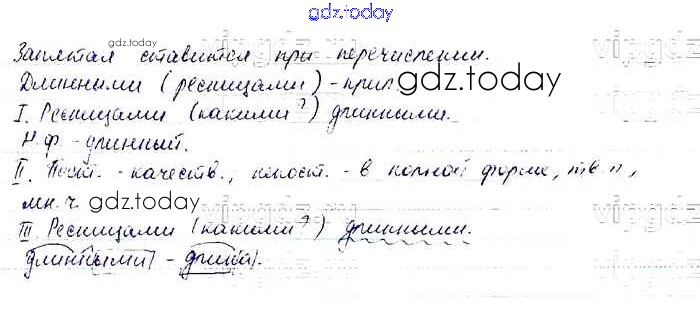 gdz.today
Запятая ставится при перечислении.
gdz.today
Длинными (ресницами) - прил.
gdz.today
I. Ресницами (какими?) длинными.
Н.ф. - длинный.
II. Пост. - качеств., непост. - в полной форме, тв. п.,
мн. ч.
gdz.today
III. Ресницами (какими?) длинными.
длинными - длина.
gdz.today